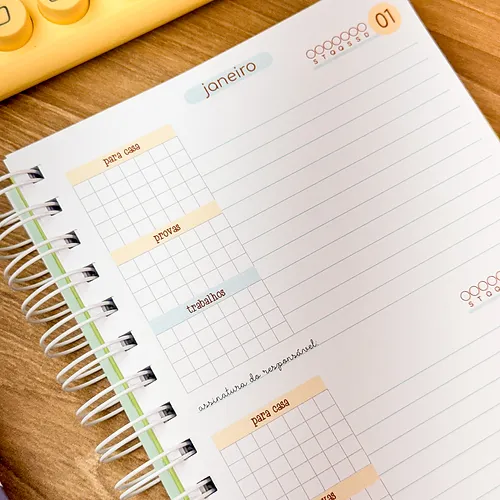 janeiro
01
S T Q Q S S D
para casa
provas
trabalhos
assinatura do responsável
para casa